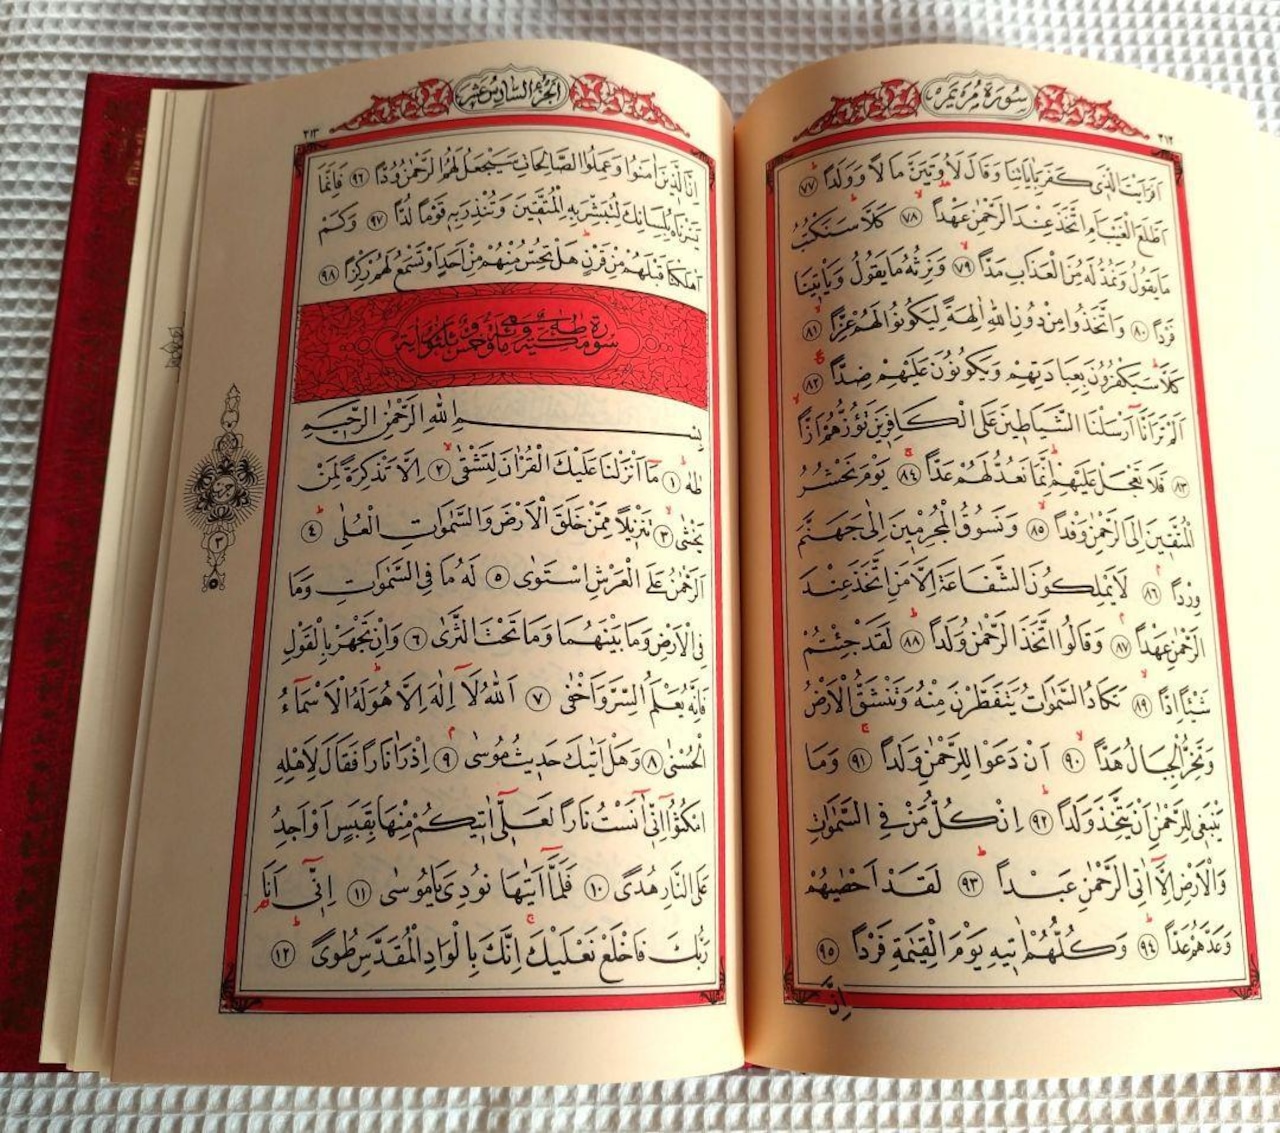 سورة مريم
٣١٢
اَفَرَاَيْتَ الَّذِي كَفَرَ بِاٰيَاتِنَا وَقَالَ لَاُوتَيَنَّ مَالًا وَوَلَدًا ٧٧
اَطَّلَعَ الْغَيْبَ اَمِ اتَّخَذَ عِنْدَ الرَّحْمٰنِ عَهْدًا ٧٨ كَلَّا سَنَكْتُبُ
مَا يَقُولُ وَنَمُدُّ لَهُ مِنَ الْعَذَابِ مَدًّا ٧٩ وَنَرِثُهُ مَا يَقُولُ وَيَأْتِينَا
فَرْدًا ٨٠ وَاتَّخَذُوا مِنْ دُونِ اللّٰهِ اٰلِهَةً لِيَكُونُوا لَهُمْ عِزًّا ٨١
كَلَّا سَيَكْفُرُونَ بِعِبَادَتِهِمْ وَيَكُونُونَ عَلَيْهِمْ ضِدًّا ٨٢
اَلَمْ تَرَ اَنَّا اَرْسَلْنَا الشَّيَاطِينَ عَلَى الْكَافِرِينَ تَؤُزُّهُمْ اَزًّا
٨٣ فَلَا تَعْجَلْ عَلَيْهِمْ اِنَّمَا نَعُدُّ لَهُمْ عَدًّا ٨٤ يَوْمَ نَحْشُرُ
الْمُتَّقِينَ اِلَى الرَّحْمٰنِ وَفْدًا ٨٥ وَنَسُوقُ الْمُجْرِمِينَ اِلٰى جَهَنَّمَ
وِرْدًا ٨٦ لَا يَمْلِكُونَ الشَّفَاعَةَ اِلَّا مَنِ اتَّخَذَ عِنْدَ
الرَّحْمٰنِ عَهْدًا ٨٧ وَقَالُوا اتَّخَذَ الرَّحْمٰنُ وَلَدًا ٨٨ لَقَدْ جِئْتُمْ
شَيْئًا اِدًّا ٨٩ تَكَادُ السَّمٰوَاتُ يَتَفَطَّرْنَ مِنْهُ وَتَنْشَقُّ الْاَرْضُ
وَتَخِرُّ الْجِبَالُ هَدًّا ٩٠ اَنْ دَعَوْا لِلرَّحْمٰنِ وَلَدًا ٩١ وَمَا
يَنْبَغِي لِلرَّحْمٰنِ اَنْ يَتَّخِذَ وَلَدًا ٩٢ اِنْ كُلُّ مَنْ فِي السَّمٰوَاتِ
وَالْاَرْضِ اِلَّا اٰتِي الرَّحْمٰنِ عَبْدًا ٩٣ لَقَدْ اَحْصٰيهُمْ
وَعَدَّهُمْ عَدًّا ٩٤ وَكُلُّهُمْ اٰتِيهِ يَوْمَ الْقِيٰمَةِ فَرْدًا ٩٥
اِنَّ
الجزء السادس عشر
٣١٣
اِنَّ الَّذِينَ اٰمَنُوا وَعَمِلُوا الصَّالِحَاتِ سَيَجْعَلُ لَهُمُ الرَّحْمٰنُ وُدًّا ٩٦ فَاِنَّمَا
يَسَّرْنَاهُ بِلِسَانِكَ لِتُبَشِّرَ بِهِ الْمُتَّقِينَ وَتُنْذِرَ بِهِ قَوْمًا لُدًّا ٩٧ وَكَمْ
اَهْلَكْنَا قَبْلَهُمْ مِنْ قَرْنٍ هَلْ تُحِسُّ مِنْهُمْ مِنْ اَحَدٍ اَوْ تَسْمَعُ لَهُمْ رِكْزًا ٩٨
سورة طه مكية وهي مائة وخمس وثلثون آية
بِسْمِ اللّٰهِ الرَّحْمٰنِ الرَّحِيمِ
طٰهٰ ١ مَا اَنْزَلْنَا عَلَيْكَ الْقُرْاٰنَ لِتَشْقٰى ٢ اِلَّا تَذْكِرَةً لِمَنْ
يَخْشٰى ٣ تَنْزِيلًا مِمَّنْ خَلَقَ الْاَرْضَ وَالسَّمٰوَاتِ الْعُلٰى ٤
اَلرَّحْمٰنُ عَلَى الْعَرْشِ اسْتَوٰى ٥ لَهُ مَا فِي السَّمٰوَاتِ وَمَا
فِي الْاَرْضِ وَمَا بَيْنَهُمَا وَمَا تَحْتَ الثَّرٰى ٦ وَاِنْ تَجْهَرْ بِالْقَوْلِ
فَاِنَّهُ يَعْلَمُ السِّرَّ وَاَخْفٰى ٧ اَللّٰهُ لَا اِلٰهَ اِلَّا هُوَ لَهُ الْاَسْمَاءُ
الْحُسْنٰى ٨ وَهَلْ اَتٰيكَ حَدِيثُ مُوسٰى ٩ اِذْ رَاٰ نَارًا فَقَالَ لِاَهْلِهِ
امْكُثُوا اِنِّي اٰنَسْتُ نَارًا لَعَلِّي اٰتِيكُمْ مِنْهَا بِقَبَسٍ اَوْ اَجِدُ
عَلَى النَّارِ هُدًى ١٠ فَلَمَّا اَتٰيهَا نُودِيَ يَا مُوسٰى ١١ اِنِّي اَنَا
رَبُّكَ فَاخْلَعْ نَعْلَيْكَ اِنَّكَ بِالْوَادِ الْمُقَدَّسِ طُوًى ١٢